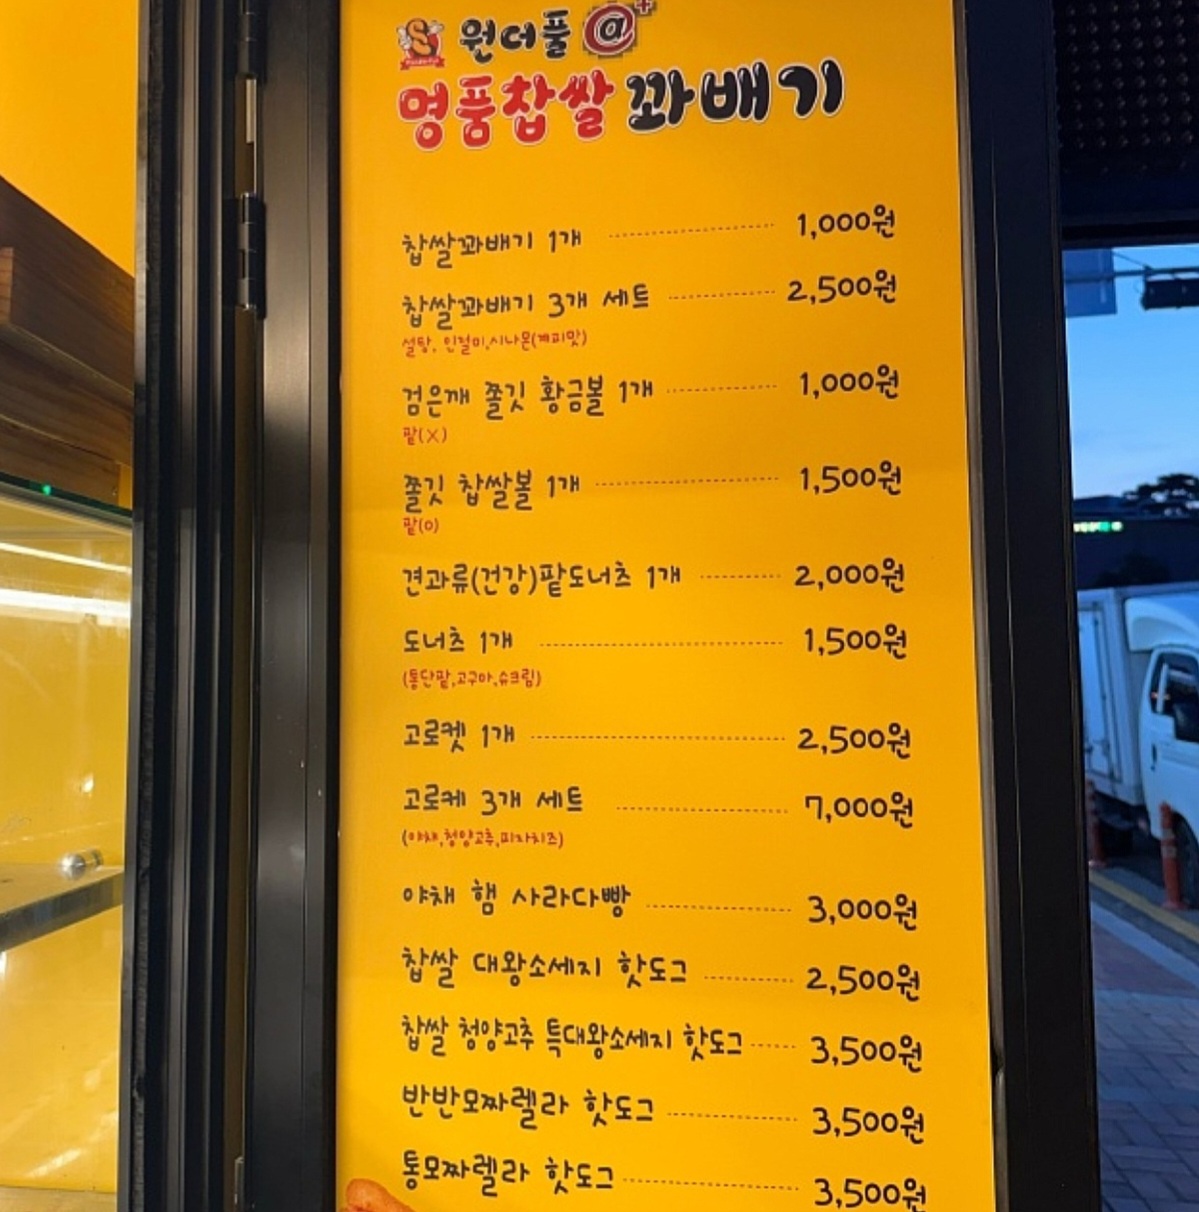 원더풀 @+
명품찹쌀 꽈배기
찹쌀꽈배기 1개 1,000원
찹쌀꽈배기 3개 세트 2,500원
설탕, 인절미,시나몬(계피맛)
검은깨 쫄깃 황금볼 1개 1,000원
팥(X)
쫄깃 찹쌀볼 1개 1,500원
팥(O)
견과류(건강)팥도너츠 1개 2,000원
도너츠 1개 1,500원
(통단팥,고구마,슈크림)
고로켓 1개 2,500원
고로케 3개 세트 7,000원
(야채,청양고추,피자치즈)
야채 햄 사라다빵 3,000원
찹쌀 대왕소세지 핫도그 2,500원
찹쌀 청양고추 특대왕소세지 핫도그 3,500원
반반모짜렐라 핫도그 3,500원
통모짜렐라 핫도그 3,500원